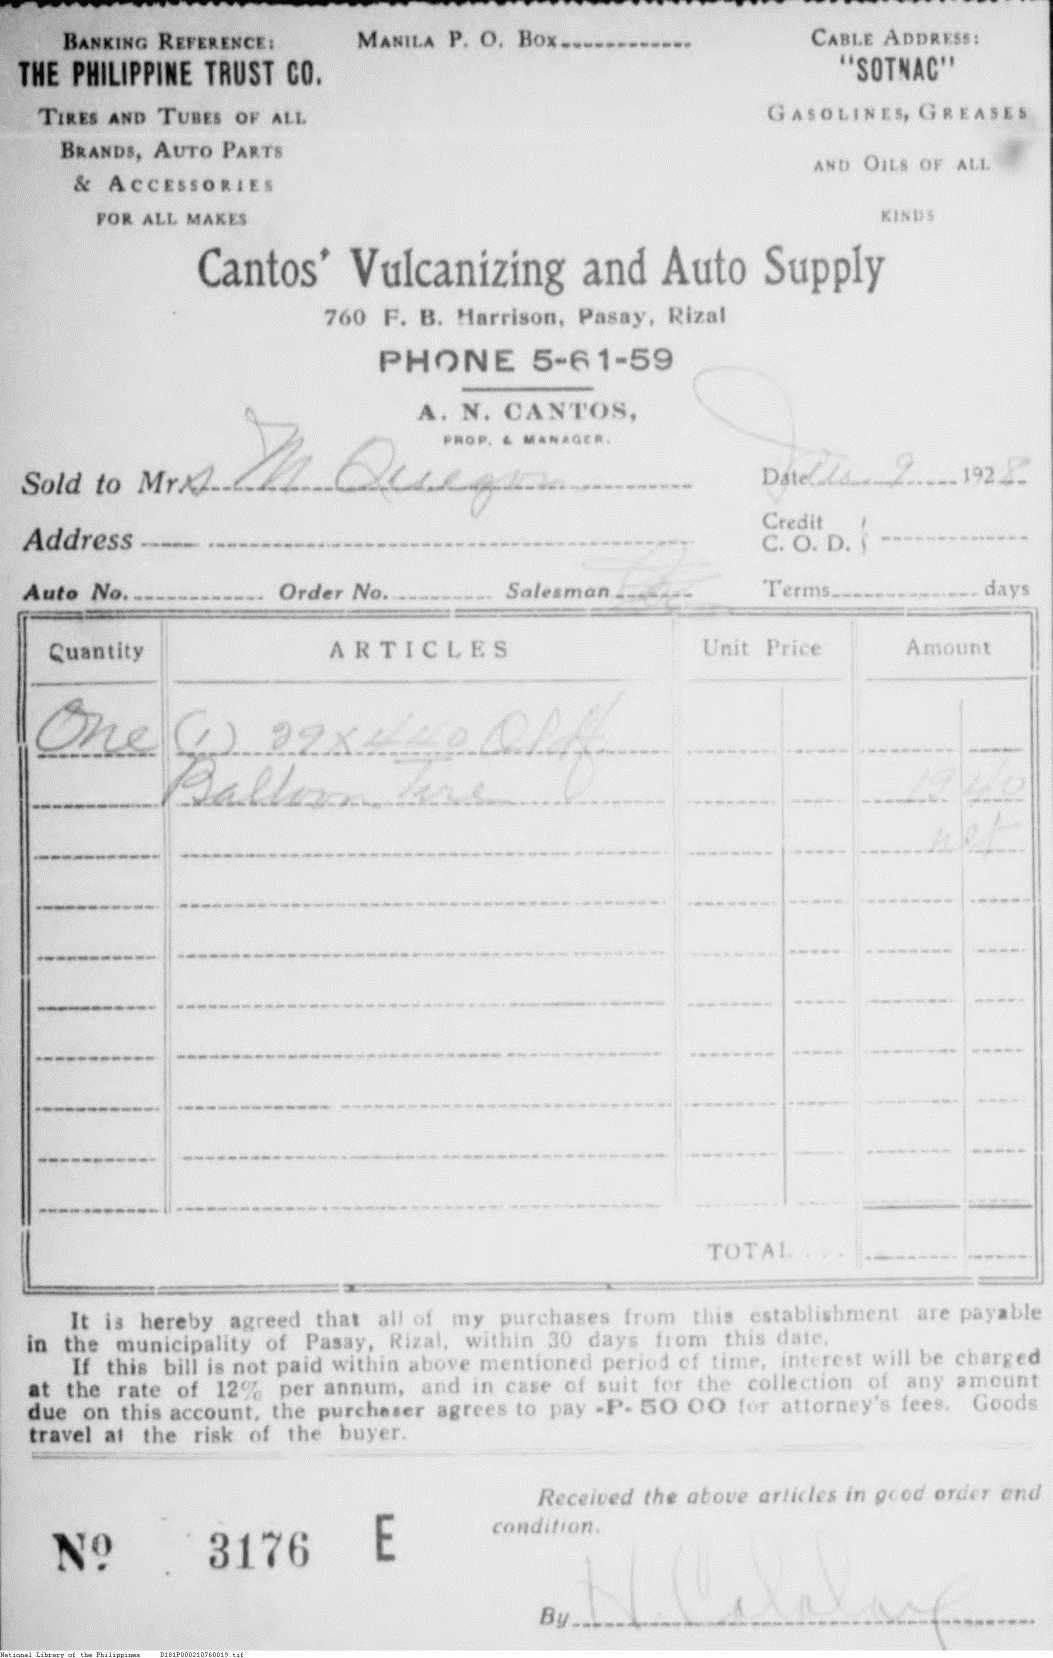 BANKING REFERENCE:
THE PHILIPPINE TRUST CO.
TIRES AND TUBES OF ALL
BRANDS, AUTO PARTS
& ACCESSORIES
FOR ALL MAKES
MANILA P. O. BOX
CABLE ADDRESS:
"SOTNAC"
GASOLINES, GREASES
AND OILS OF ALL
KINDS
Cantos' Vulcanizing and Auto Supply
760 F. B. Harrison, Pasay, Rizal
PHONE 5-61-59
A. N. CANTOS,
PROP. & MANAGER.
Sold to Mrs M. Quezon Date 9 1928
Address Credit C. O. D.
Auto No. Order No. Salesman Terms days
Quantity ARTICLES Unit Price Amount
One (1) 29 x 440
Balloon tire 19 40
net
TOTAL....
It is hereby agreed that all of my purchases from this establishment are payable
in the municipality of Pasay, Rizal, within 30 days from this date.
If this bill is not paid within above mentioned period of time, interest will be charged
at the rate of 12% per annum, and in case of suit for the collection of any amount
due on this account, the purchaser agrees to pay -P- 50 00 for attorney's fees. Goods
travel at the risk of the buyer.
Received the above articles in good order and
condition.
No 3176 E
By H.
National Library of the Philippines D181P000210760019.tif